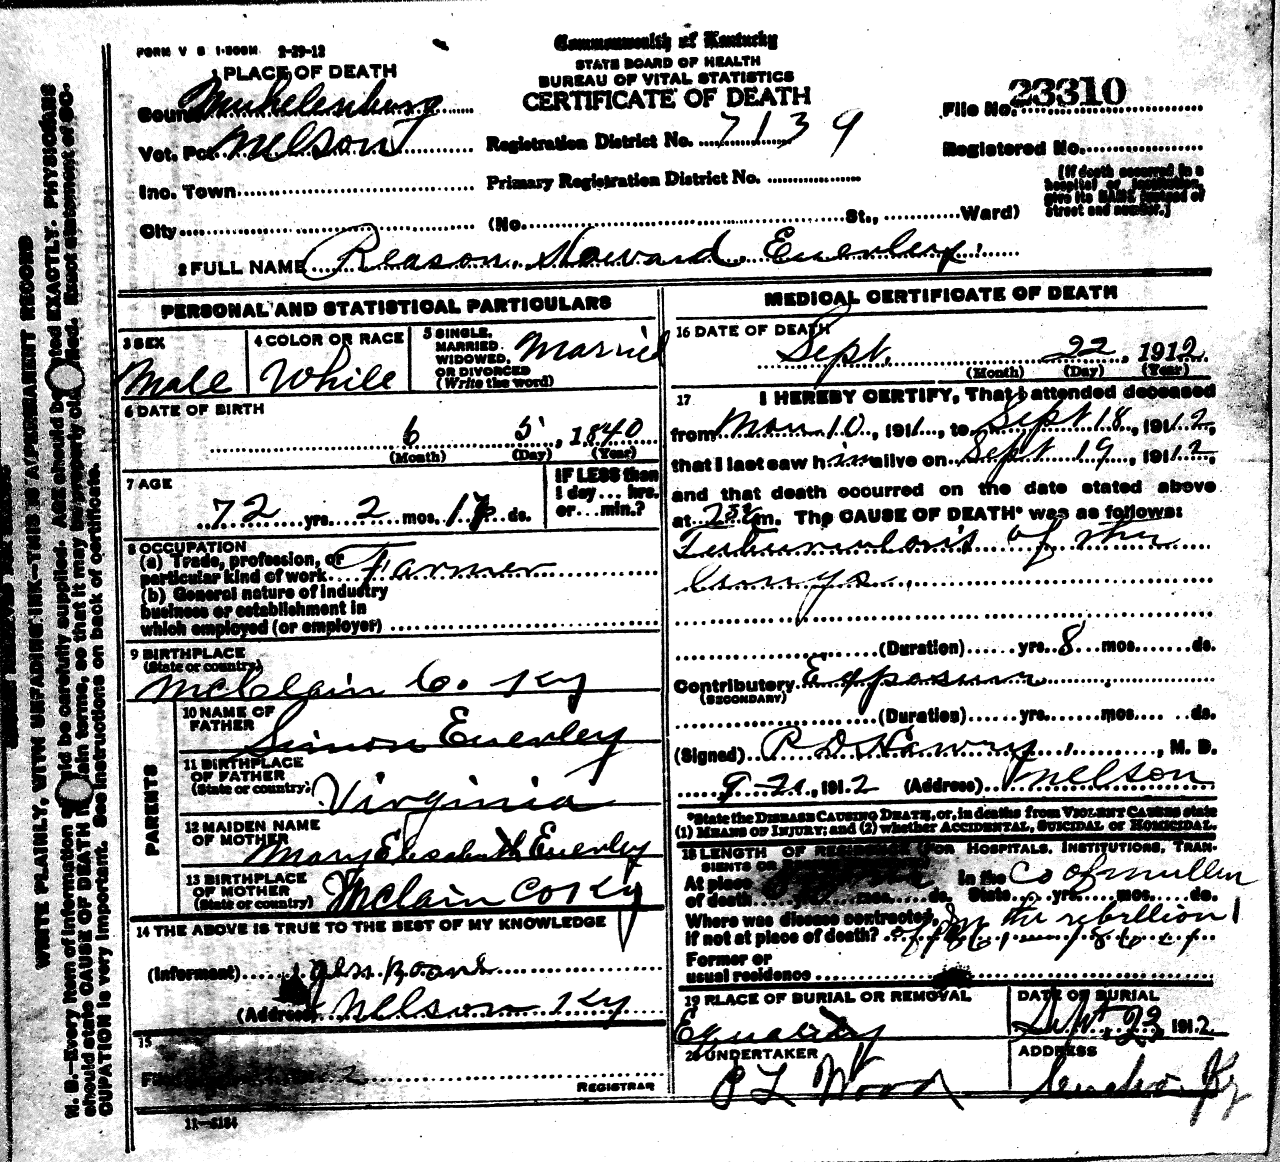 FORM V S 1-500M 2-29-12
Commonwealth of Kentucky
STATE BOARD OF HEALTH
BUREAU OF VITAL STATISTICS
CERTIFICATE OF DEATH
1 PLACE OF DEATH
County Muhelenburg
Vot. Pct. Nelson
Inc. Town
City
Registration District No. 7139
Primary Registration District No.
(No. St., Ward)
File No. 23310
Registered No.
[If death occurred in a
hospital or institution,
give its NAME instead of
street and number.]
2 FULL NAME Reason Howard Everley
PERSONAL AND STATISTICAL PARTICULARS
3 SEX
Male
4 COLOR OR RACE
White
5 SINGLE,
MARRIED.
WIDOWED,
OR DIVORCED
(Write the word)
Married
6 DATE OF BIRTH
6 5, 1840
(Month) (Day) (Year)
7 AGE
72 yrs. 2 mos. 17 ds.
IF LESS than
1 day... hrs.
or... min.?
8 OCCUPATION
(a) Trade, profession, or
particular kind of work Farmer
(b) General nature of industry
business or establishment in
which employed (or employer)
9 BIRTHPLACE
(State or country)
McClain Co. Ky
PARENTS
10 NAME OF
FATHER
Simon Everley
11 BIRTHPLACE
OF FATHER
(State or country)
Virginia
12 MAIDEN NAME
OF MOTHER
Mary Elisabeth Everley
13 BIRTHPLACE
OF MOTHER
(State or country)
Mclain Co Ky
14 THE ABOVE IS TRUE TO THE BEST OF MY KNOWLEDGE
(Informant)
(Address) Nelson Ky
15
REGISTRAR
11-5184
MEDICAL CERTIFICATE OF DEATH
16 DATE OF DEATH
Sept. 22, 1912
(Month) (Day) (Year)
17 I HEREBY CERTIFY, That I attended deceased
from 10, 1911, to Sept 18, 1912,
that I last saw him alive on Sept 19, 1912,
and that death occurred on the date stated above
at m. The CAUSE OF DEATH* was as follows:
Tuberculosis of the
lungs
(Duration) yrs. 8 mos. ds.
Contributory Exposure
(SECONDARY)
(Duration) yrs. mos. ds.
(Signed) , M. D.
1912 (Address) Nelson
*State the DISEASE CAUSING DEATH, or, in deaths from VIOLENT CAUSES state
(1) MEANS OF INJURY; and (2) whether ACCIDENTAL, SUICIDAL or HOMICIDAL.
18 LENGTH OF RESIDENCE (FOR HOSPITALS, INSTITUTIONS, TRAN-
SIENTS OR
At place
of death yrs. mos. ds.
In the
State yrs. mos. ds.
Co of mullen
Where was disease contracted,
if not at place of death?
In the rebellion
Former or
usual residence
19 PLACE OF BURIAL OR REMOVAL
Equality
DATE OF BURIAL
Sept. 23, 1912
20 UNDERTAKER
P L Wood
ADDRESS
Ky
WRITE PLAINLY, WITH UNFADING INK—THIS IS A PERMANENT RECORD
N. B.—Every item of information should be carefully supplied. AGE should be stated EXACTLY. PHYSICIANS
should state CAUSE OF DEATH in plain terms, so that it may be properly classified. Exact statement of OC-
CUPATION is very important. See instructions on back of certificate.